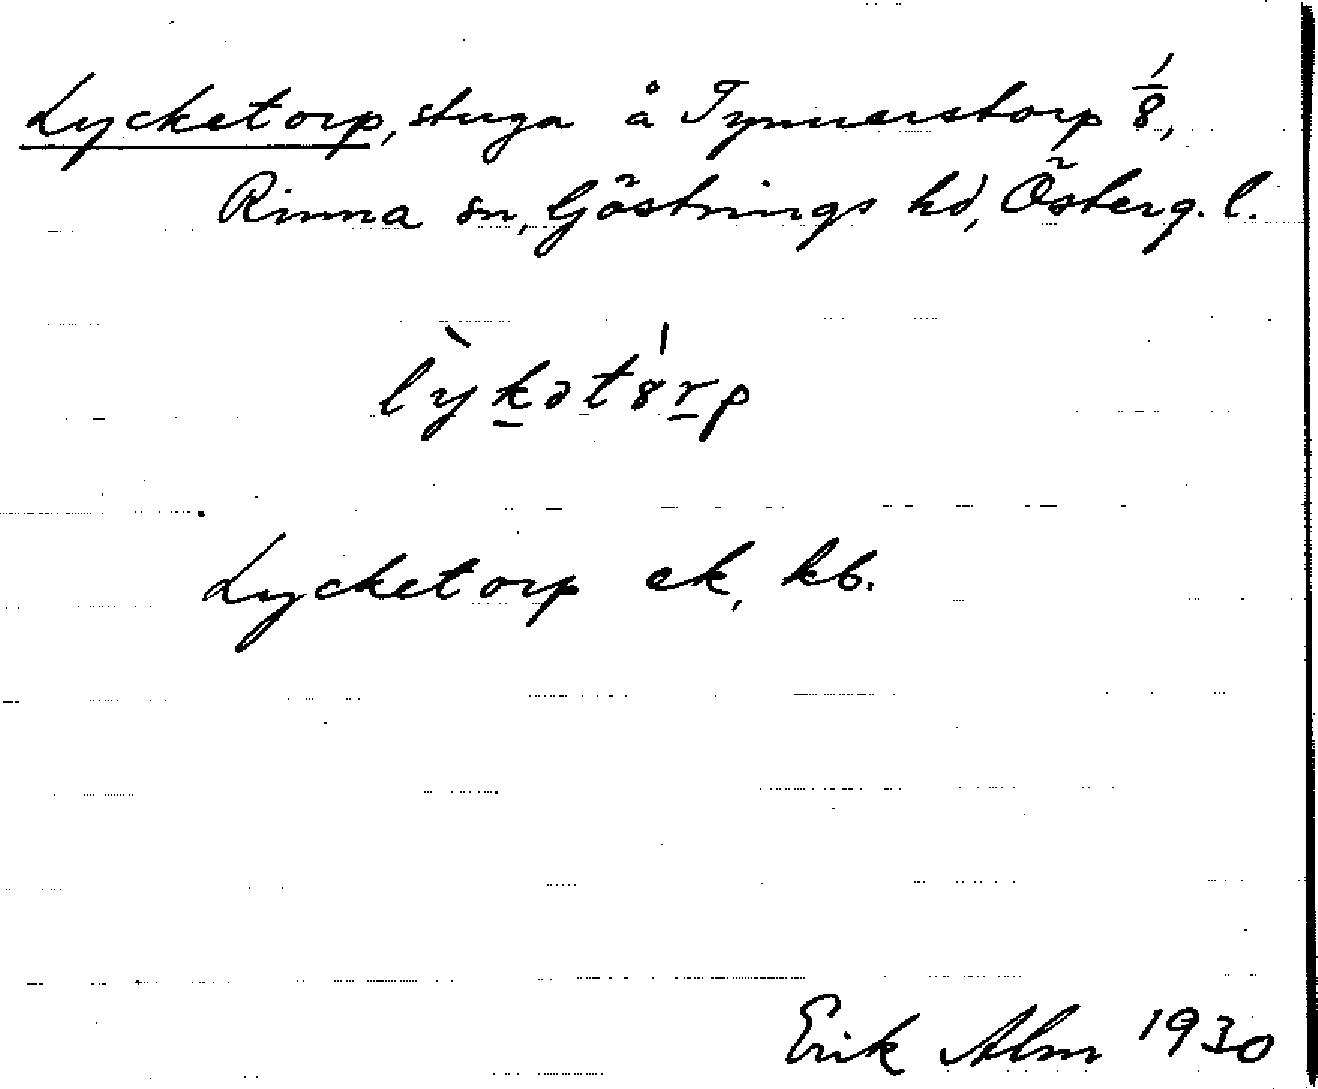 Lycketorp, stuga å Tynnerstorp 1/8,
Rinna sn, Göstrings hd, Österg. l.
lỳkətörp
Lycketorp ek, kb.
Erik Alm 1930